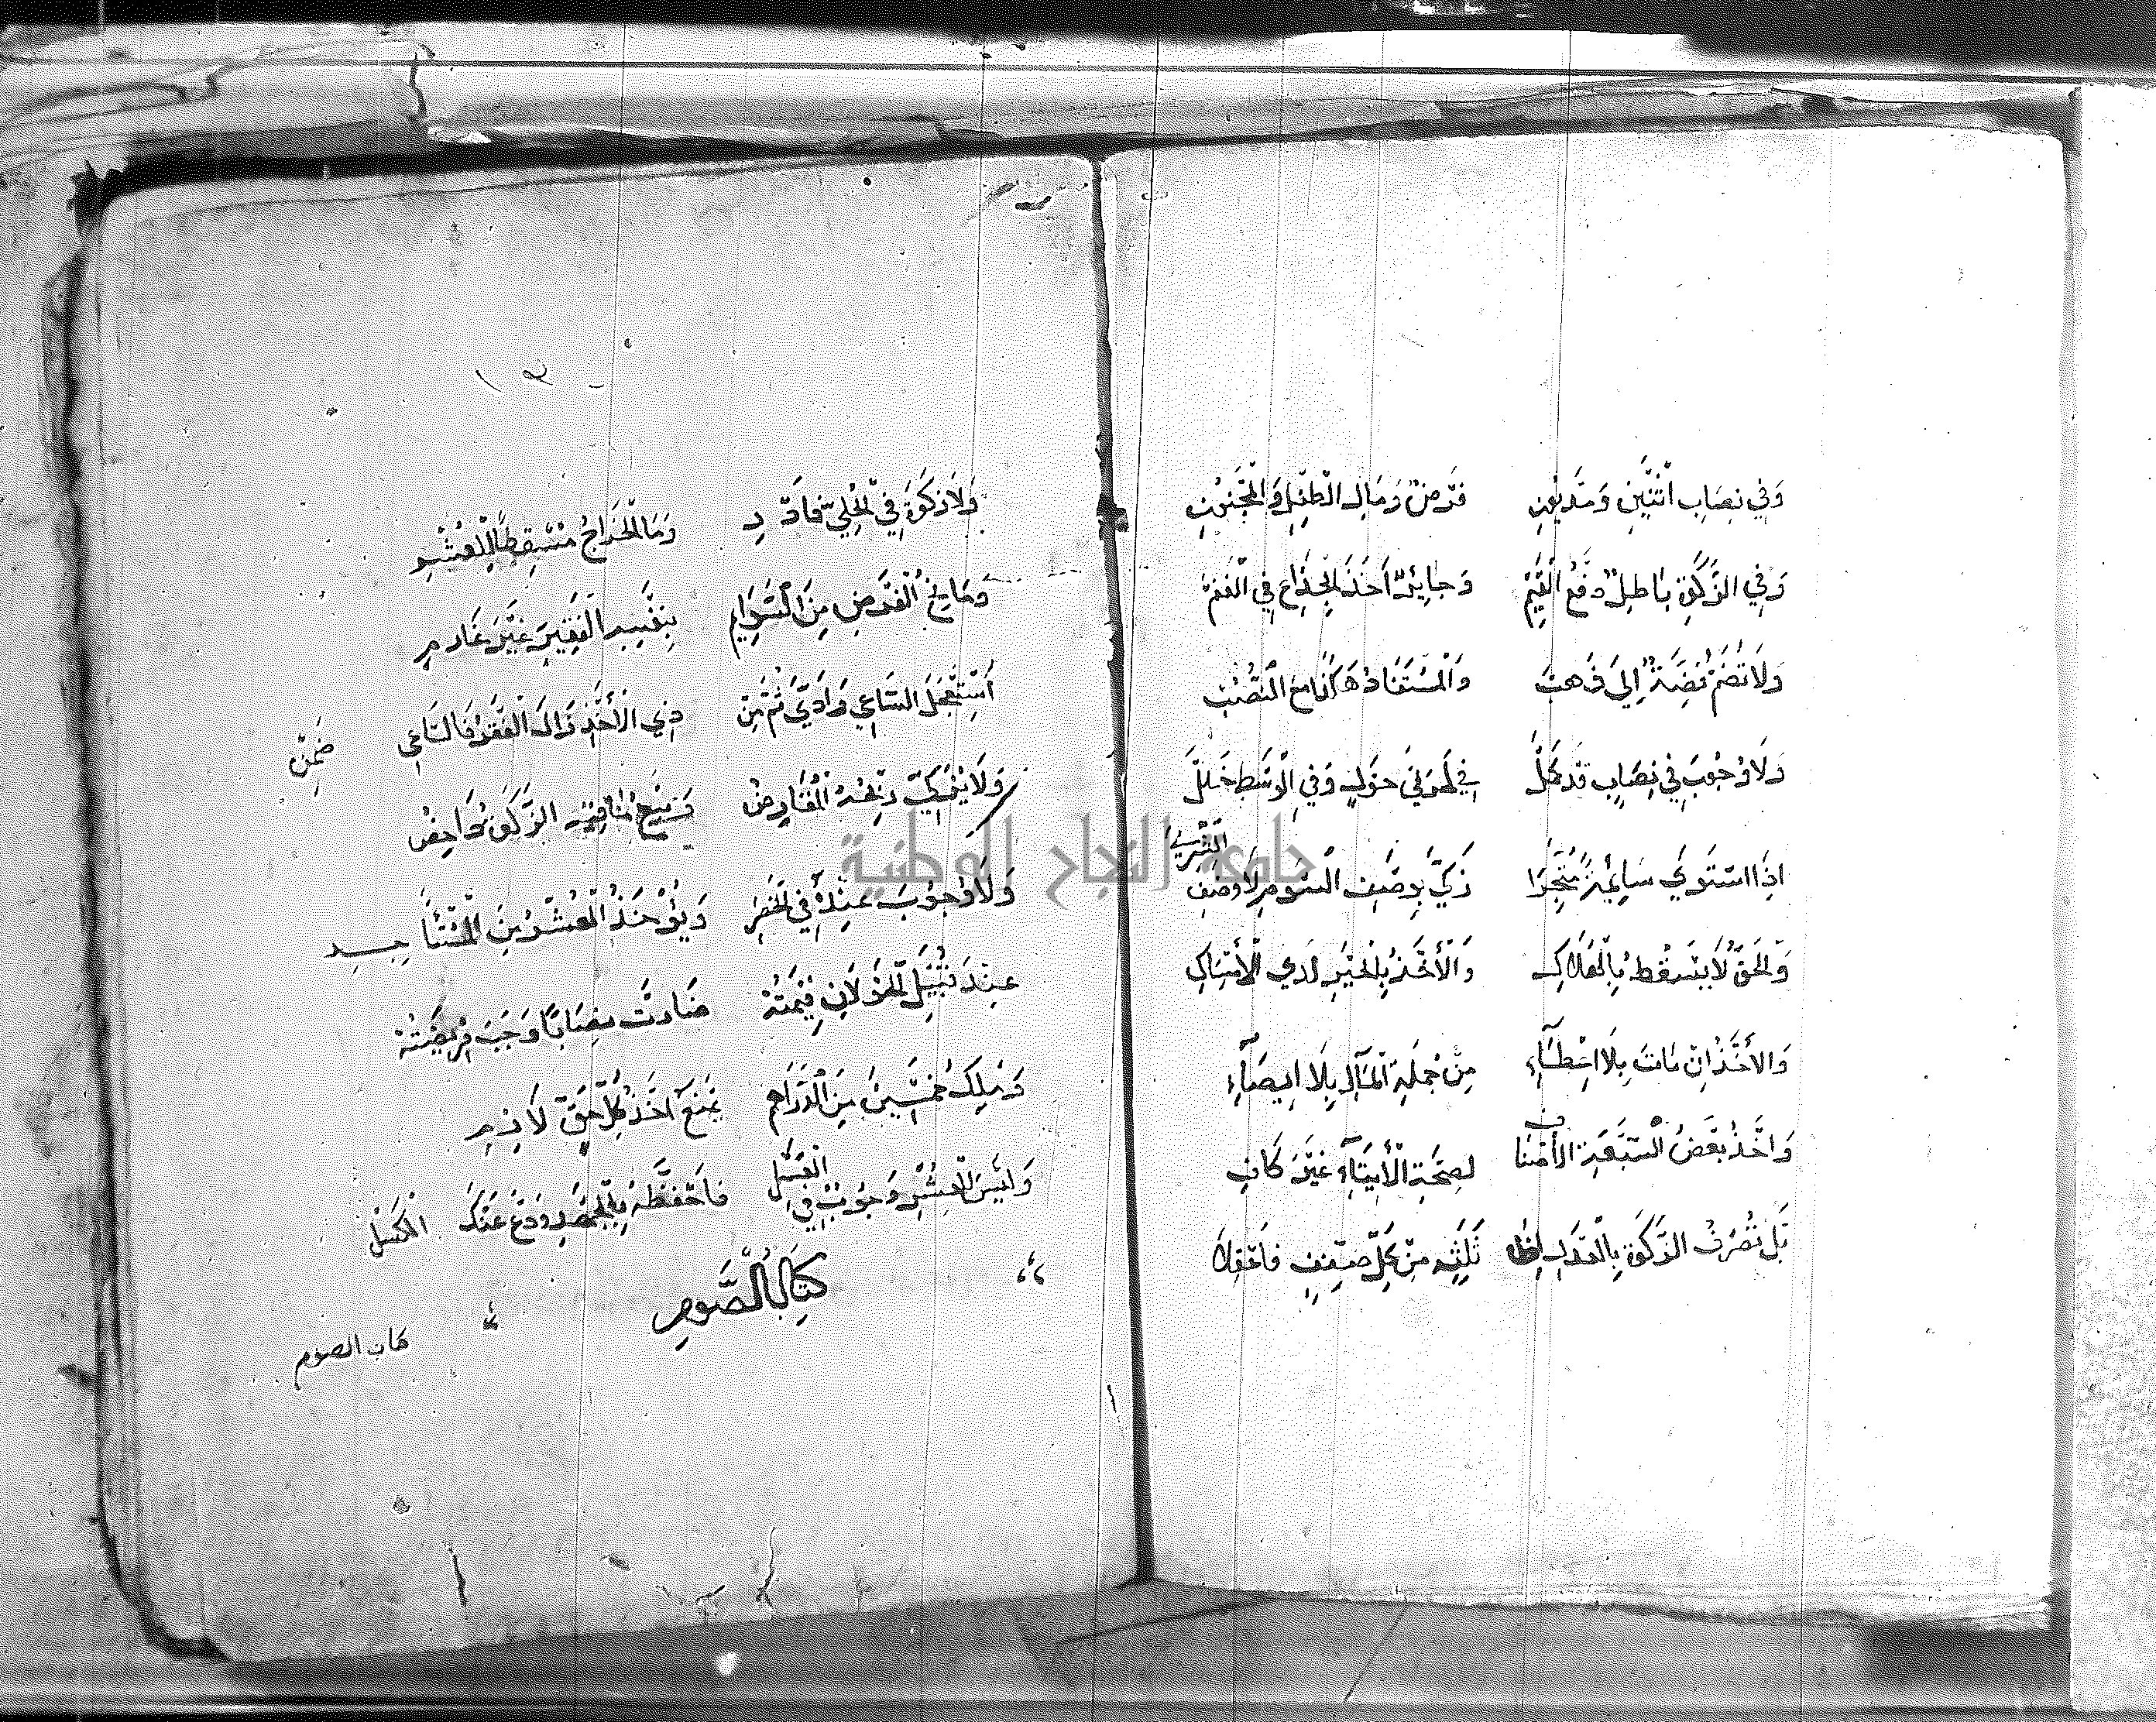 وَفِي نِصَابِ اثْنَيْنِ وَمَدْيُونِ فَرْضٌ وَمَالِ الطِّفْلِ وَالْمَجْنُونِ
وَفِي الزَّكَوةِ بَاطِلٌ دَفْعُ الْقِيَمْ وَجَايِزٌ أَخْذُ الْجِذَاعِ فِي الْغَنَمْ
وَلَا تُضَمُّ فِضَّةٌ إِلَى ذَهَبْ وَالْمُسْتَفَادُ هَكَذَا مَعَ النُّصُبْ
وَلَا وُجُوبَ فِي نِصَابٍ قَدْ كَمَلْ فِي طَرَفَيْ حَوْلٍ وَفِي الْوَسَطِ خَلَلْ
إِذَا اسْتَوَى سَايِمَةً مُتَّجِرَا زَكَّى بِوَصْفِ السَّوْمِ لَا وَصْفِ الشِّرَى
وَالْحَقُّ لَا يَسْقُطُ بِالْهَلَاكِ وَالْأَخْذُ بِالْخَيْرِ لَدَى الْأَمْسَاكِ
وَالْأَخْذُ إِنْ مَاتَ بِلَا إِعْطَاءِ مِنْ جُمْلَةِ الْمَالِ بِلَا إِيصَاءِ
وَأَخْذُ بَعْضِ السَّبْعَةِ الْأَصْنَافِ لِصِحَّةِ الْأَيْتَاءِ غَيْرَ كَافِ
بَلْ تُصْرَفُ الزَّكَوةُ بِالْعَدْلِ إِلَى ثَلَثَةٍ مِنْ كُلِّ صِنْفٍ فَاعْقِلَا
١٣
وَلَا زَكَوةَ فِي الْحُلِيِّ فَادْرِ وَمَا الْخَرَاجُ مُسْقِطًا لِلْعُشْرِ
وَمَانِحُ الْفَرْضِ مِنَ السَّوَايِمِ بِنَفْسِهِ الْفَقِيرَ غَيْرَ غَارِمِ
اسْتَعْجَلَ السَّاعِي وَأَدَّى ثُمَّ مَنْ ذِي الْأَخْذِ زَالَ الْفَقْرُ فَالسَّاعِي ضَمِنْ
وَلَا يُزَكِّي رِبْحَهُ الْمُقَارِضُ
وَلَا وُجُوبَ عِنْدَهُ فِي الْخُضَرِ وَيُؤْخَذُ الْعُشْرُ مِنَ الْمُسْتَأْجِرِ
عِنْدَ نُتَيْلِ الْحَوْلِ إِنْ قِيمَتُهُ صَارَتْ نِصَابًا وَجَبَ فَرِيضَتُهْ
وَمِلْكُ خَمْسِينَ مِنَ الدَّرَاهِمِ يَمْنَعُ أَخْذَ كُلِّ حَقٍّ لَازِمِ
وَلَيْسَ لِلْعُشْرِ وُجُوبٌ فِي الْعَسَلْ فَاحْفَظْهُ بِالْحَصْرِ وَدَعْ عَنْكَ الْكَسَلْ
كِتَابُ الصَّوْمِ
كتاب الصوم
جامعة النجاح الوطنية